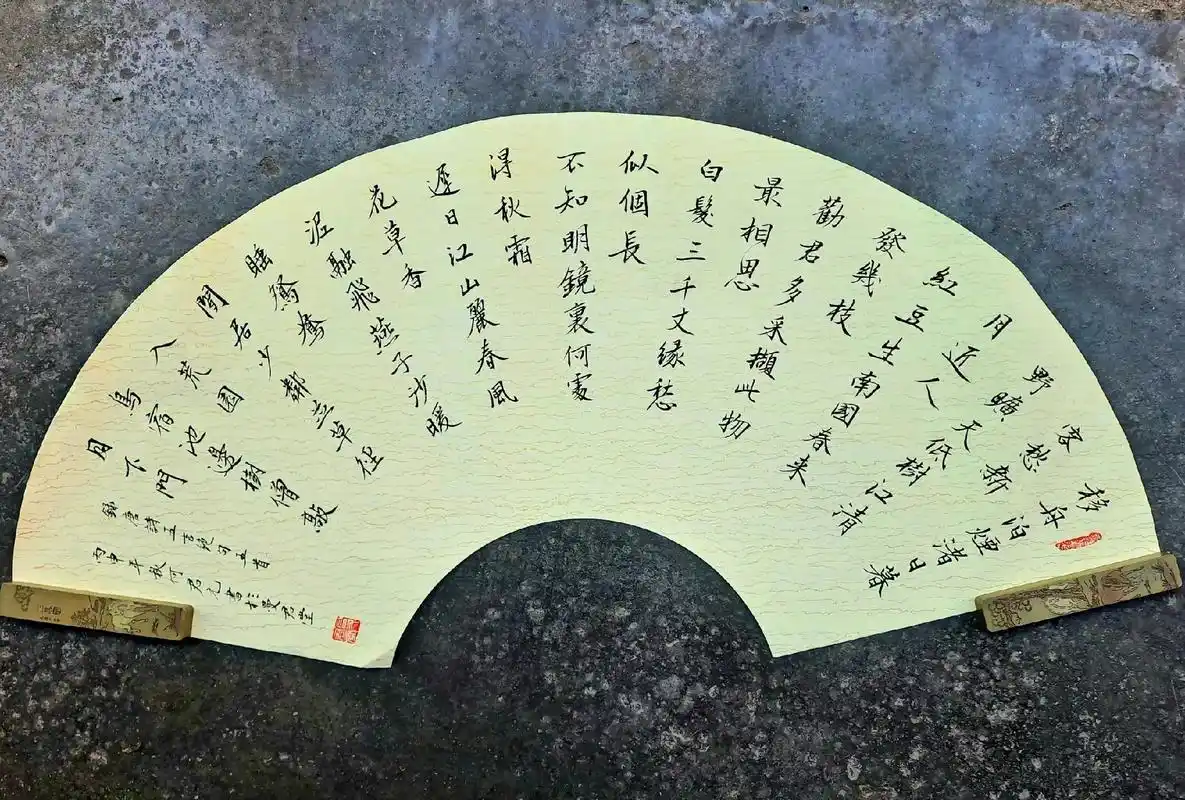 移舟泊煙渚日暮
客愁新
野曠天低樹江清
月近人
紅豆生南國春来
發幾枝
勸君多采擷此物
最相思
白髮三千丈緣愁
似個長
不知明鏡裏何處
得秋霜
遲日江山麗春風
花草香
泥融飛燕子沙暖
睡鴛鴦
閒居少鄰並草徑
入荒園
鳥宿池邊樹僧敲
月下門
錄唐詩五言絕句五首
丙申年秋何君